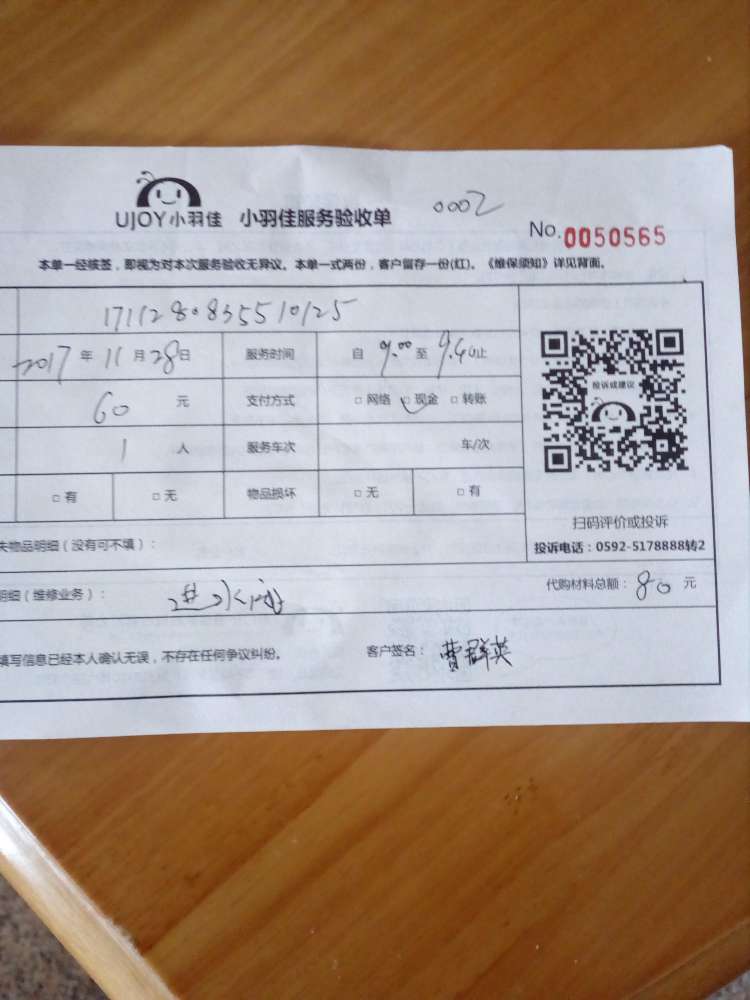 0002
UJOY小羽佳 小羽佳服务验收单
No. 0050565
本单一经核签，即视为对本次服务验收无异议。本单一式两份，客户留存一份(红)。《维保须知》详见背面。
1711280835510125
2017 年 11 月 28 日 服务时间 自 9.00 至 9.40 止
60 元 支付方式 □ 网络 □ 现金 □ 转账
1 人 服务车次 车/次
□ 有 □ 无 物品损坏 □ 无 □ 有
投诉或建议
扫码评价或投诉
投诉电话：0592-5178888转2
失物品明细（没有可不填）：
明细（维修业务）： 进水阀
代购材料总额： 80 元
填写信息已经本人确认无误，不存在任何争议纠纷。 客户签名： 曹群英